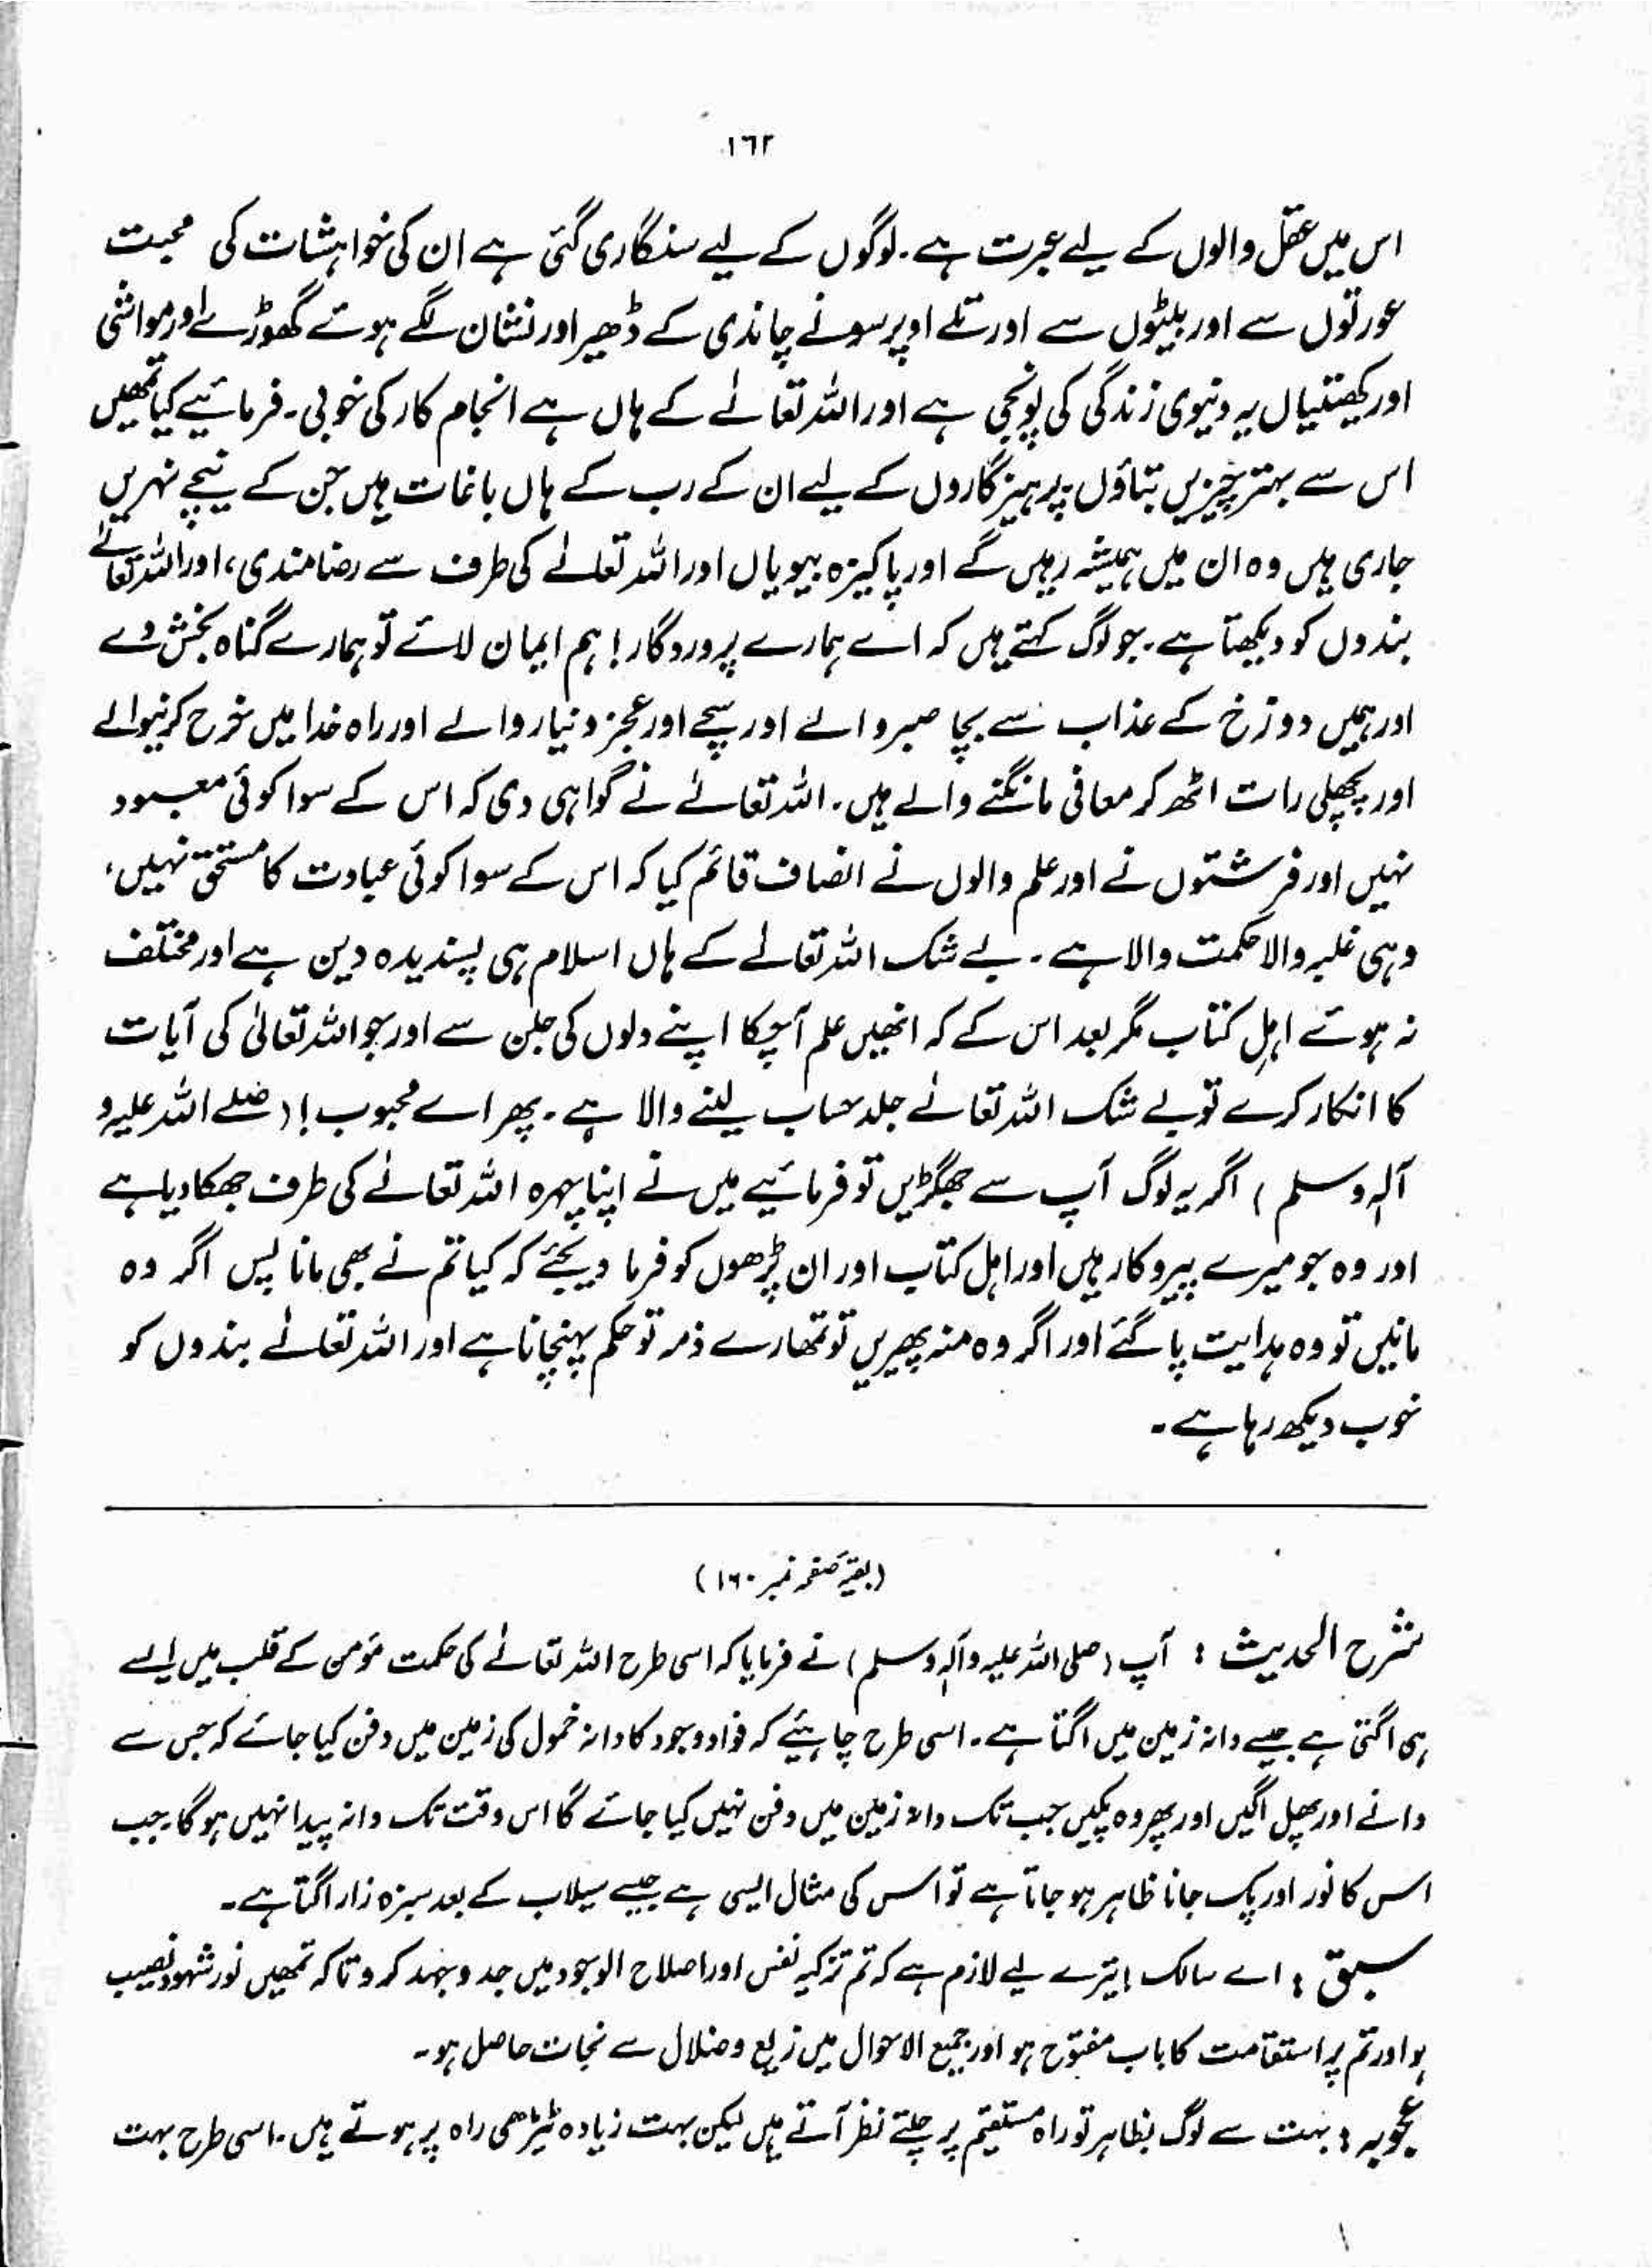 ١٦٢
اس میں عقل والوں کے لیے عبرت ہے۔ لوگوں کے لیے سنگاری گئی ہے ان کی خواہشات کی محبت
عورتوں سے اور بیٹوں سے اور تلے اوپر سونے چاندی کے ڈھیر اور نشان لگے ہوئے گھوڑے اور مواشی
اور کھیتیاں یہ دنیوی زندگی کی پونجی ہے اور اللہ تعالےٰ کے ہاں ہے انجام کار کی خوبی۔ فرمائیے کیا تمھیں
اس سے بہتر چیزیں بتاؤں پرہیزگاروں کے لیے ان کے رب کے ہاں باغات ہیں جن کے نیچے نہریں
جاری ہیں وہ ان میں ہمیشہ رہیں گے اور پاکیزہ بیویاں اور اللہ تعالےٰ کی طرف سے رضامندی، اور اللہ تعالےٰ
بندوں کو دیکھتا ہے۔ جو لوگ کہتے ہیں کہ اے ہمارے پروردگار! ہم ایمان لائے تو ہمارے گناہ بخش دے
اور ہمیں دوزخ کے عذاب سے بچا صبر والے اور سچے اور عجز و نیاز والے اور راہ خدا میں خرچ کرنیوالے
اور پچھلی رات اٹھ کر معافی مانگنے والے ہیں۔ اللہ تعالےٰ نے گواہی دی کہ اس کے سوا کوئی معبود
نہیں اور فرشتوں نے اور علم والوں نے انصاف قائم کیا کہ اس کے سوا کوئی عبادت کا مستحق نہیں،
وہی غلبہ والا حکمت والا ہے۔ بے شک اللہ تعالےٰ کے ہاں اسلام ہی پسندیدہ دین ہے اور مختلف
نہ ہوئے اہلِ کتاب مگر بعد اس کے کہ انھیں علم آچکا اپنے دلوں کی جلن سے اور جو اللہ تعالیٰ کی آیات
کا انکار کرے تو بے شک اللہ تعالےٰ جلد حساب لینے والا ہے۔ پھر اے محبوب! (صلے اللہ علیہ و
آلہٖ وسلم) اگر یہ لوگ آپ سے جھگڑیں تو فرمائیے میں نے اپنا چہرہ اللہ تعالےٰ کی طرف جھکا دیا ہے
اور وہ جو میرے پیروکار ہیں اور اہل کتاب اور ان پڑھوں کو فرما دیجئے کہ کیا تم نے بھی مانا پس اگر وہ
مانیں تو وہ ہدایت پا گئے اور اگر وہ منہ پھیریں تو تمھارے ذمہ تو حکم پہنچانا ہے اور اللہ تعالےٰ بندوں کو
خوب دیکھ رہا ہے۔
(بقیہ صفحہ نمبر ۱۶۰)
شرح الحدیث : آپ (صلی اللہ علیہ وآلہٖ وسلم) نے فرمایا کہ اسی طرح اللہ تعالےٰ کی حکمت مؤمن کے قلب میں ایسے
ہی اگتی ہے جیسے دانہ زمین میں اگتا ہے۔ اسی طرح چاہئیے کہ فواد وجود کا دانہ خمول کی زمین میں دفن کیا جائے کہ جس سے
دانے اور پھل اگیں اور پھر وہ پکیں جب تک دانہ زمین میں دفن نہیں کیا جائے گا اس وقت تک دانہ پیدا نہیں ہوگا۔ جب
اس کا نور اور پک جانا ظاہر ہو جاتا ہے تو اس کی مثال ایسی ہے جیسے سیلاب کے بعد سبزہ زار اگتا ہے۔
سبق : اے سالک! تیرے لیے لازم ہے کہ تم تزکیہ نفس اور اصلاح الوجود میں جد و جہد کرو تاکہ تمھیں نور شہود نصیب
ہو اور تم پر استقامت کا باب مفتوح ہو اور جمیع الاحوال میں زیغ و ضلال سے نجات حاصل ہو۔
عجوبہ : بہت سے لوگ بظاہر تو راہ مستقیم پر چلتے نظر آتے ہیں لیکن بہت زیادہ ٹیڑھی راہ پر ہوتے ہیں۔ اسی طرح بہت